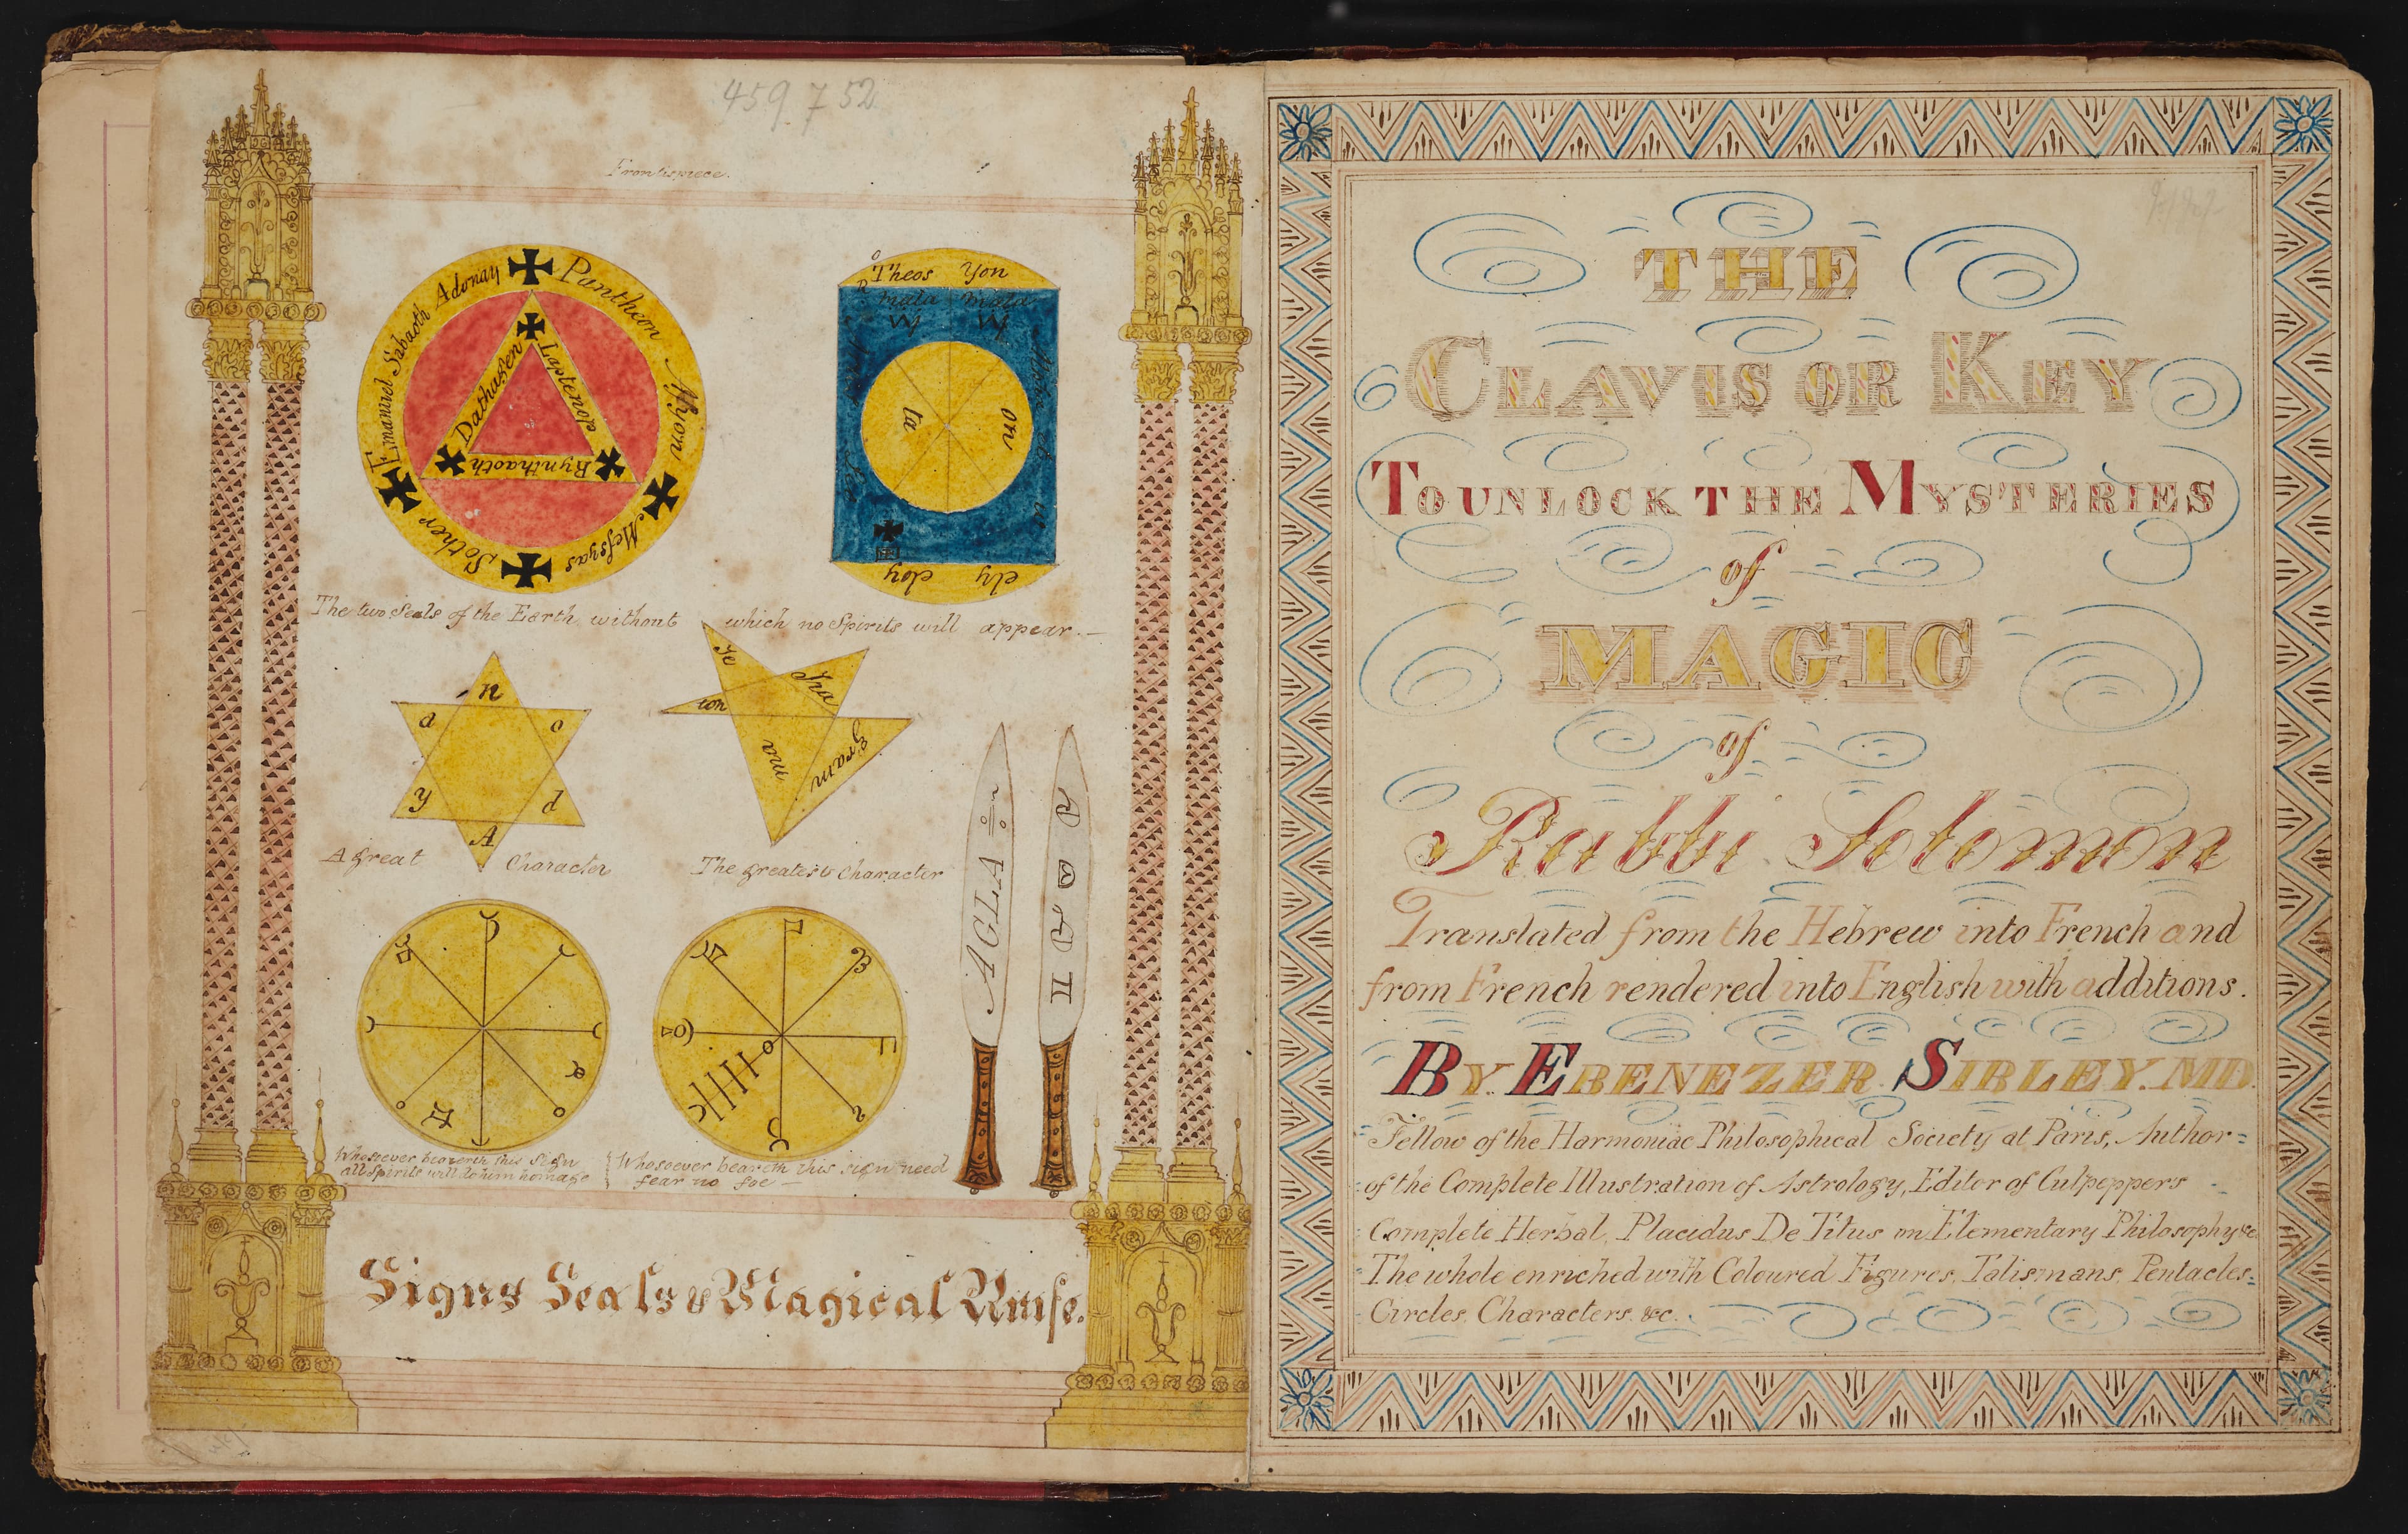 459752
Frontispiece.
Emanuel Sabaoth Adonay Pantheon Ayon Messyas Sother
Dathagen Laptenoch Rynthaoth
Theos Yon
mala mala
M M
la on
eloy ely
The two Seals of the Earth without which no Spirits will appear.
n
a o
y d
A
A great Character
Te tra
ton
ma gram
The greatest Character
AGLA
Whosoever beareth this Sign
all Spirits will do him homage
Whosoever beareth this sign need
fear no foe
Signs Seals & Magical Knife.
THE
CLAVIS OR KEY
TO UNLOCK THE MYSTERIES
of
MAGIC
of
Rabbi Solomon
Translated from the Hebrew into French and
from French rendered into English with additions.
BY EBENEZER SIBLEY. MD.
Fellow of the Harmoniac Philosophical Society at Paris, Author
of the Complete Illustration of Astrology, Editor of Culpeppers
Complete Herbal, Placidus De Titus on Elementary Philosophy &c
The whole enriched with Coloured Figures, Talismans, Pentacles
Circles, Characters &c.